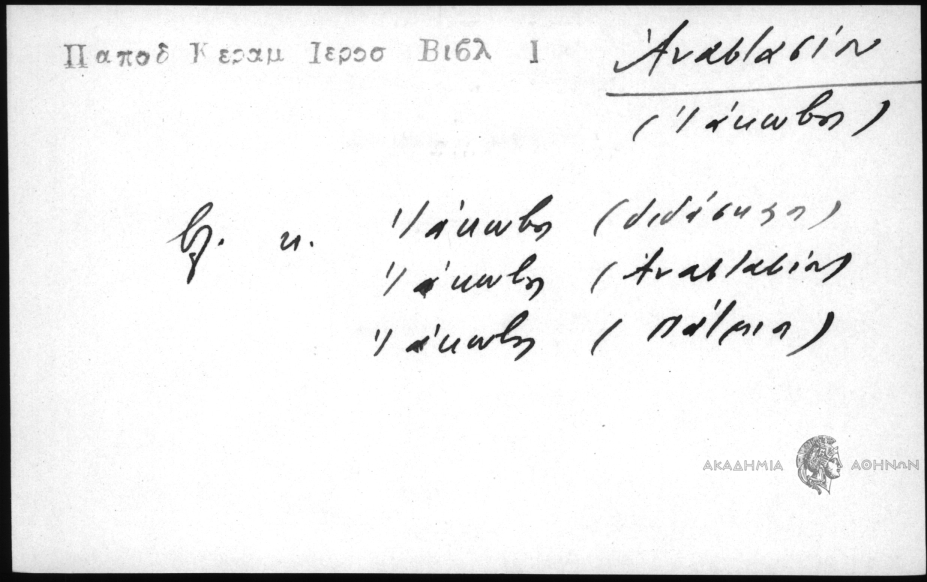 Παποδ Κεραμ Ιεροσ Βιβλ Ι
Ἀναστασίου
(Ἰάκωβος)
βλ. κ. Ἰάκωβος (διδάσκαλος)
Ἰάκωβος (Ἀναστασίου)
Ἰάκωβος (Πάτμιος)
ΑΚΑΔΗΜΙΑ ΑΘΗΝΩΝ